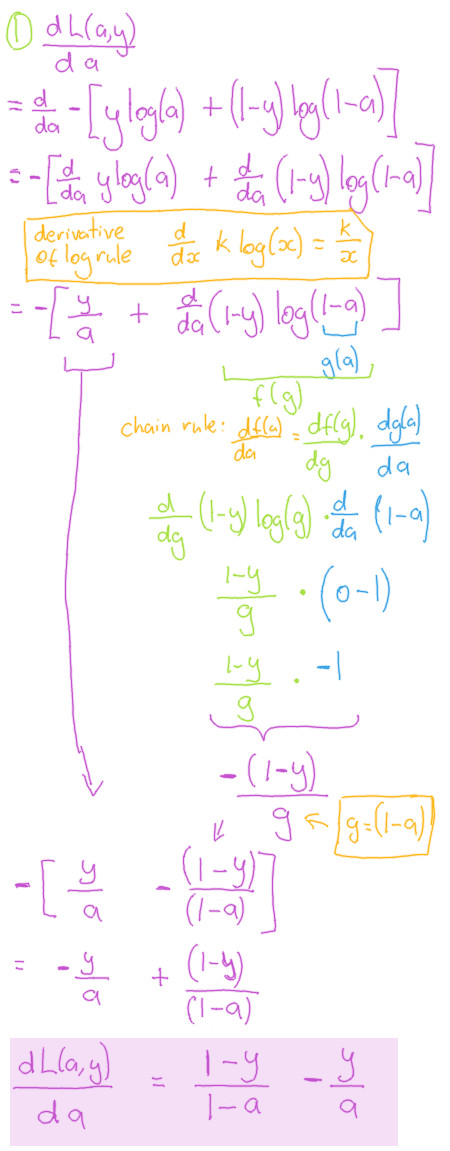 ① dL(a,y)/da
= d/da -[y log(a) + (1-y) log(1-a)]
= -[d/da y log(a) + d/da (1-y) log(1-a)]
derivative of log rule d/dx k log(x) = k/x
= -[y/a + d/da (1-y) log(1-a)]
g(a)
f(g)
chain rule: df(a)/da = df(g)/dg · dg(a)/da
d/dg (1-y) log(g) · d/da (1-a)
1-y/g · (0-1)
1-y/g · -1
-(1-y)/g
g=(1-a)
-[y/a - (1-y)/(1-a)]
= -y/a + (1-y)/(1-a)
dL(a,y)/da = 1-y/1-a - y/a